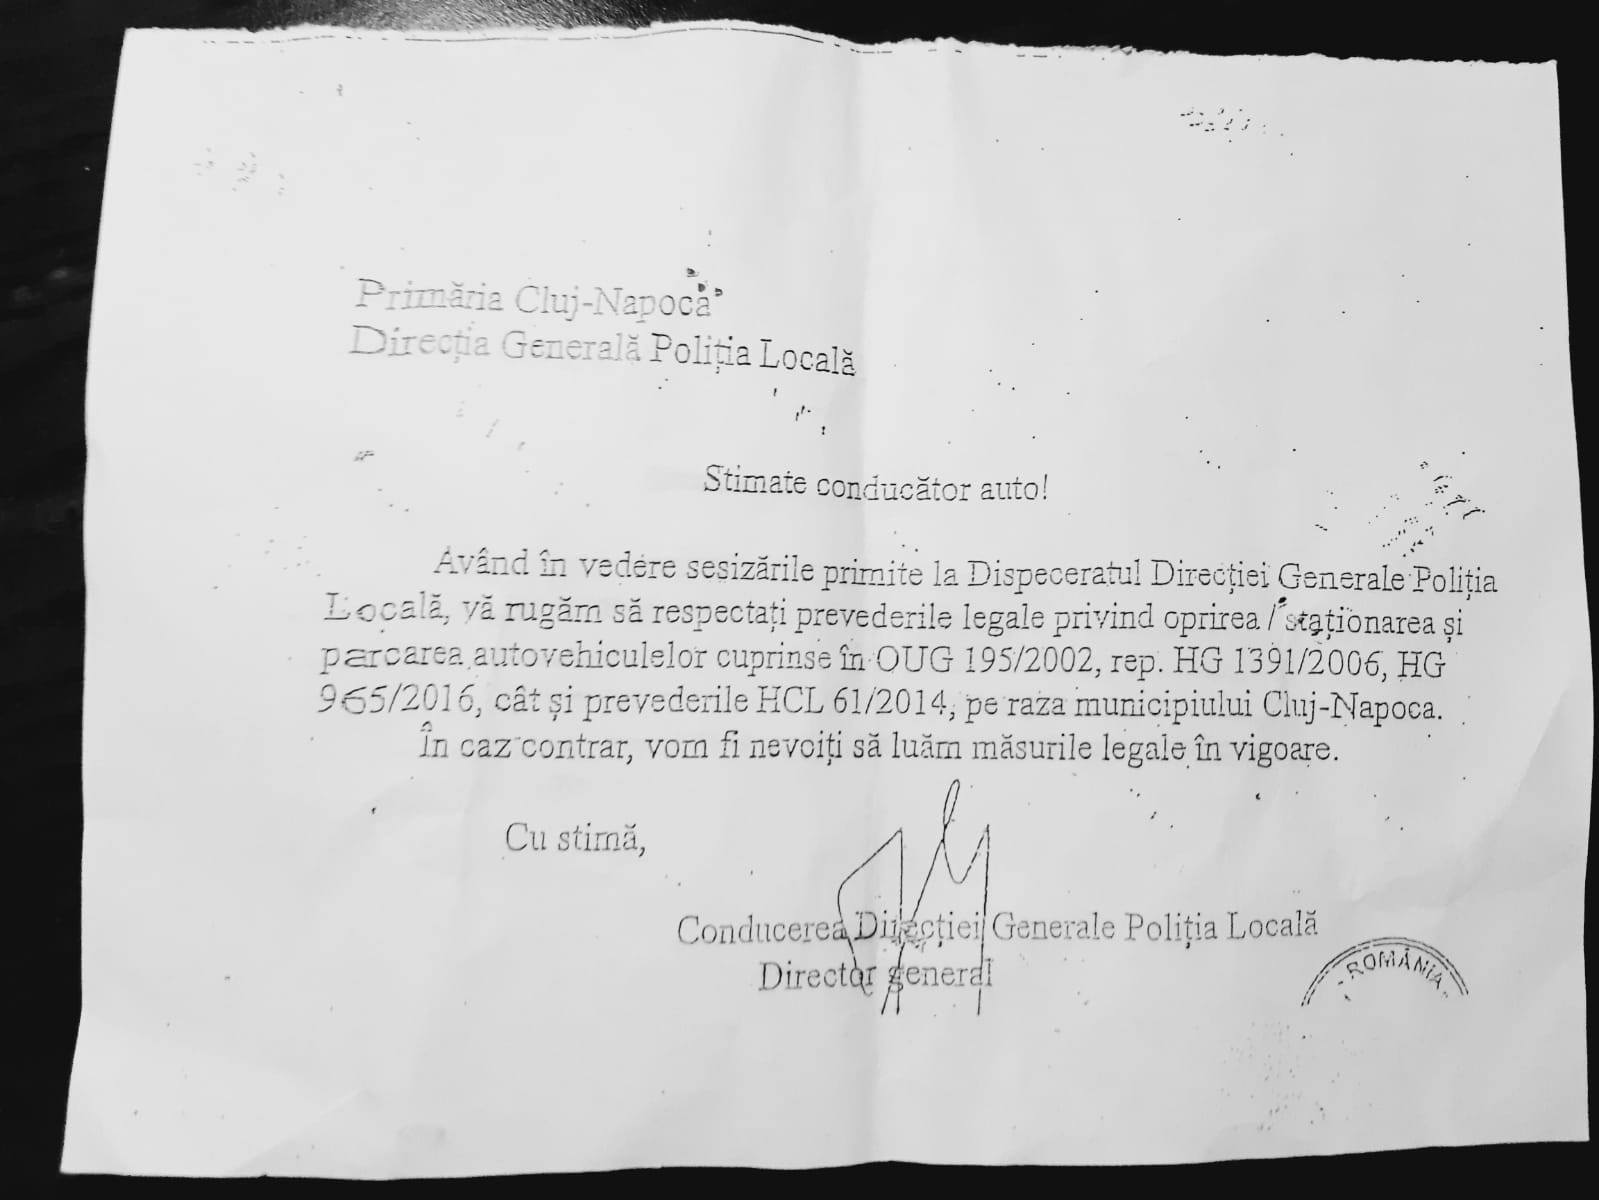 Primăria Cluj-Napoca
Direcția Generală Poliția Locală
Stimate conducător auto!
Având în vedere sesizările primite la Dispeceratul Direcției Generale Poliția
Locală, vă rugăm să respectați prevederile legale privind oprirea / staționarea și
parcarea autovehiculelor cuprinse în OUG 195/2002, rep. HG 1391/2006, HG
965/2016, cât și prevederile HCL 61/2014, pe raza municipiului Cluj-Napoca.
În caz contrar, vom fi nevoiți să luăm măsurile legale în vigoare.
Cu stimă,
Conducerea Direcției Generale Poliția Locală
Director general
ROMÂNIA